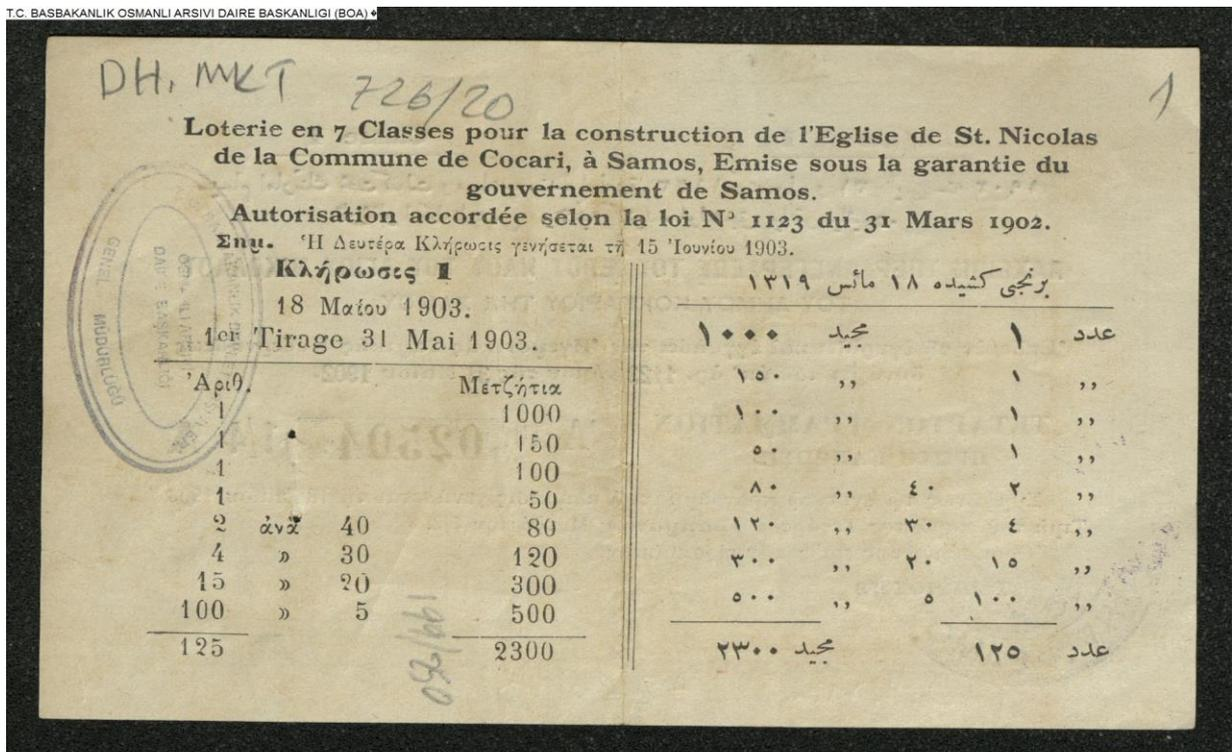 T.C. BASBAKANLIK OSMANLI ARSIVI DAIRE BASKANLIGI (BOA)
DH. MKT 726/20
1
Loterie en 7 Classes pour la construction de l'Eglise de St. Nicolas
de la Commune de Cocari, à Samos, Emise sous la garantie du
gouvernement de Samos.
Autorisation accordée selon la loi Nº 1123 du 31 Mars 1902.
Σημ. Ἡ Δευτέρα Κλήρωσις γενήσεται τῇ 15 Ἰουνίου 1903.
Κλήρωσις 1
18 Μαΐου 1903.
1er Tirage 31 Mai 1903.
Ἀριθ. Μετζήτια
1 1000
1 150
1 100
1 50
2 ἀνὰ 40 80
4 » 30 120
15 » 20 300
100 » 5 500
125 2300
برنجى كشيده ١٨ مائس ١٣١٩
عدد ١ مجيد ١٠٠٠
,, ١ ,, ١٥٠
,, ١ ,, ١٠٠
,, ١ ,, ٥٠
,, ٢ ٤٠ ,, ٨٠
,, ٤ ٣٠ ,, ١٢٠
,, ١٥ ٢٠ ,, ٣٠٠
,, ١٠٠ ٥ ,, ٥٠٠
عدد ١٢٥ مجيد ٢٣٠٠
GENEL MÜDÜRLÜGÜ
DAIRE BASKANLIGI